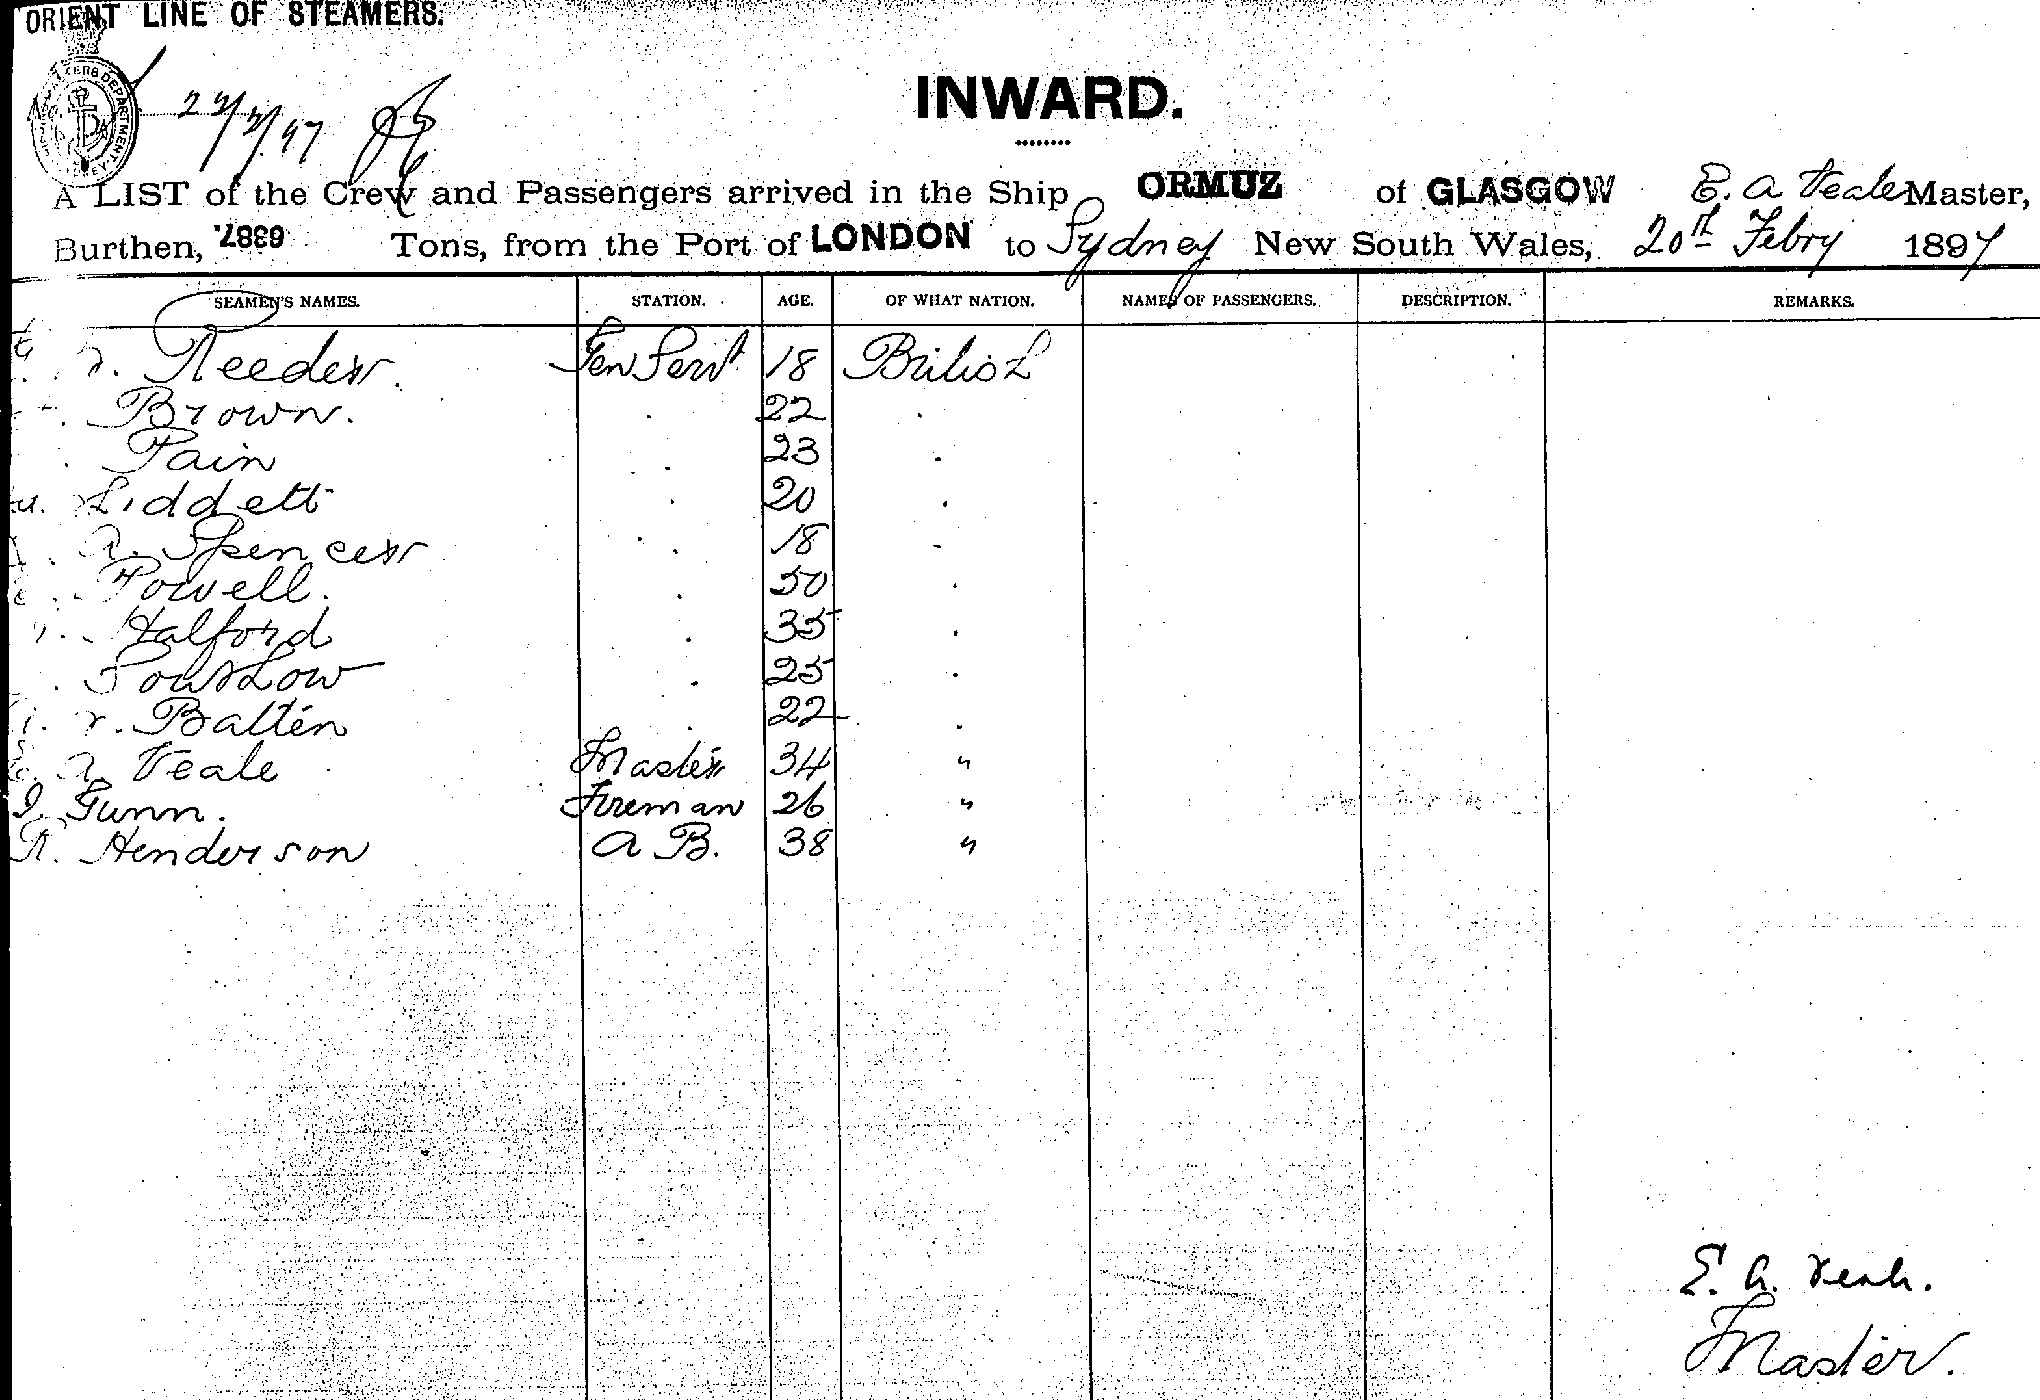 ORIENT LINE OF STEAMERS.
22/2/97
INWARD.
A LIST of the Crew and Passengers arrived in the Ship ORMUZ of GLASGOW E. A Veale Master,
Burthen, 6387. Tons, from the Port of LONDON to Sydney New South Wales, 20th Febry 1897
SEAMEN'S NAMES. STATION. AGE. OF WHAT NATION. NAMES OF PASSENGERS. DESCRIPTION. REMARKS.
Reeder. Gen Servt. 18 British
Brown. . 22 .
Pain . . 23 .
Liddett . 20 .
A. Spencer . . 18 .
Powell. . 50 .
Halford . 35 .
. 25 .
Batten . 22 .
A. Veale Master 34 "
Gunn. Fireman 26 "
R. Henderson A B. 38 "
E. A. Veale.
Master.